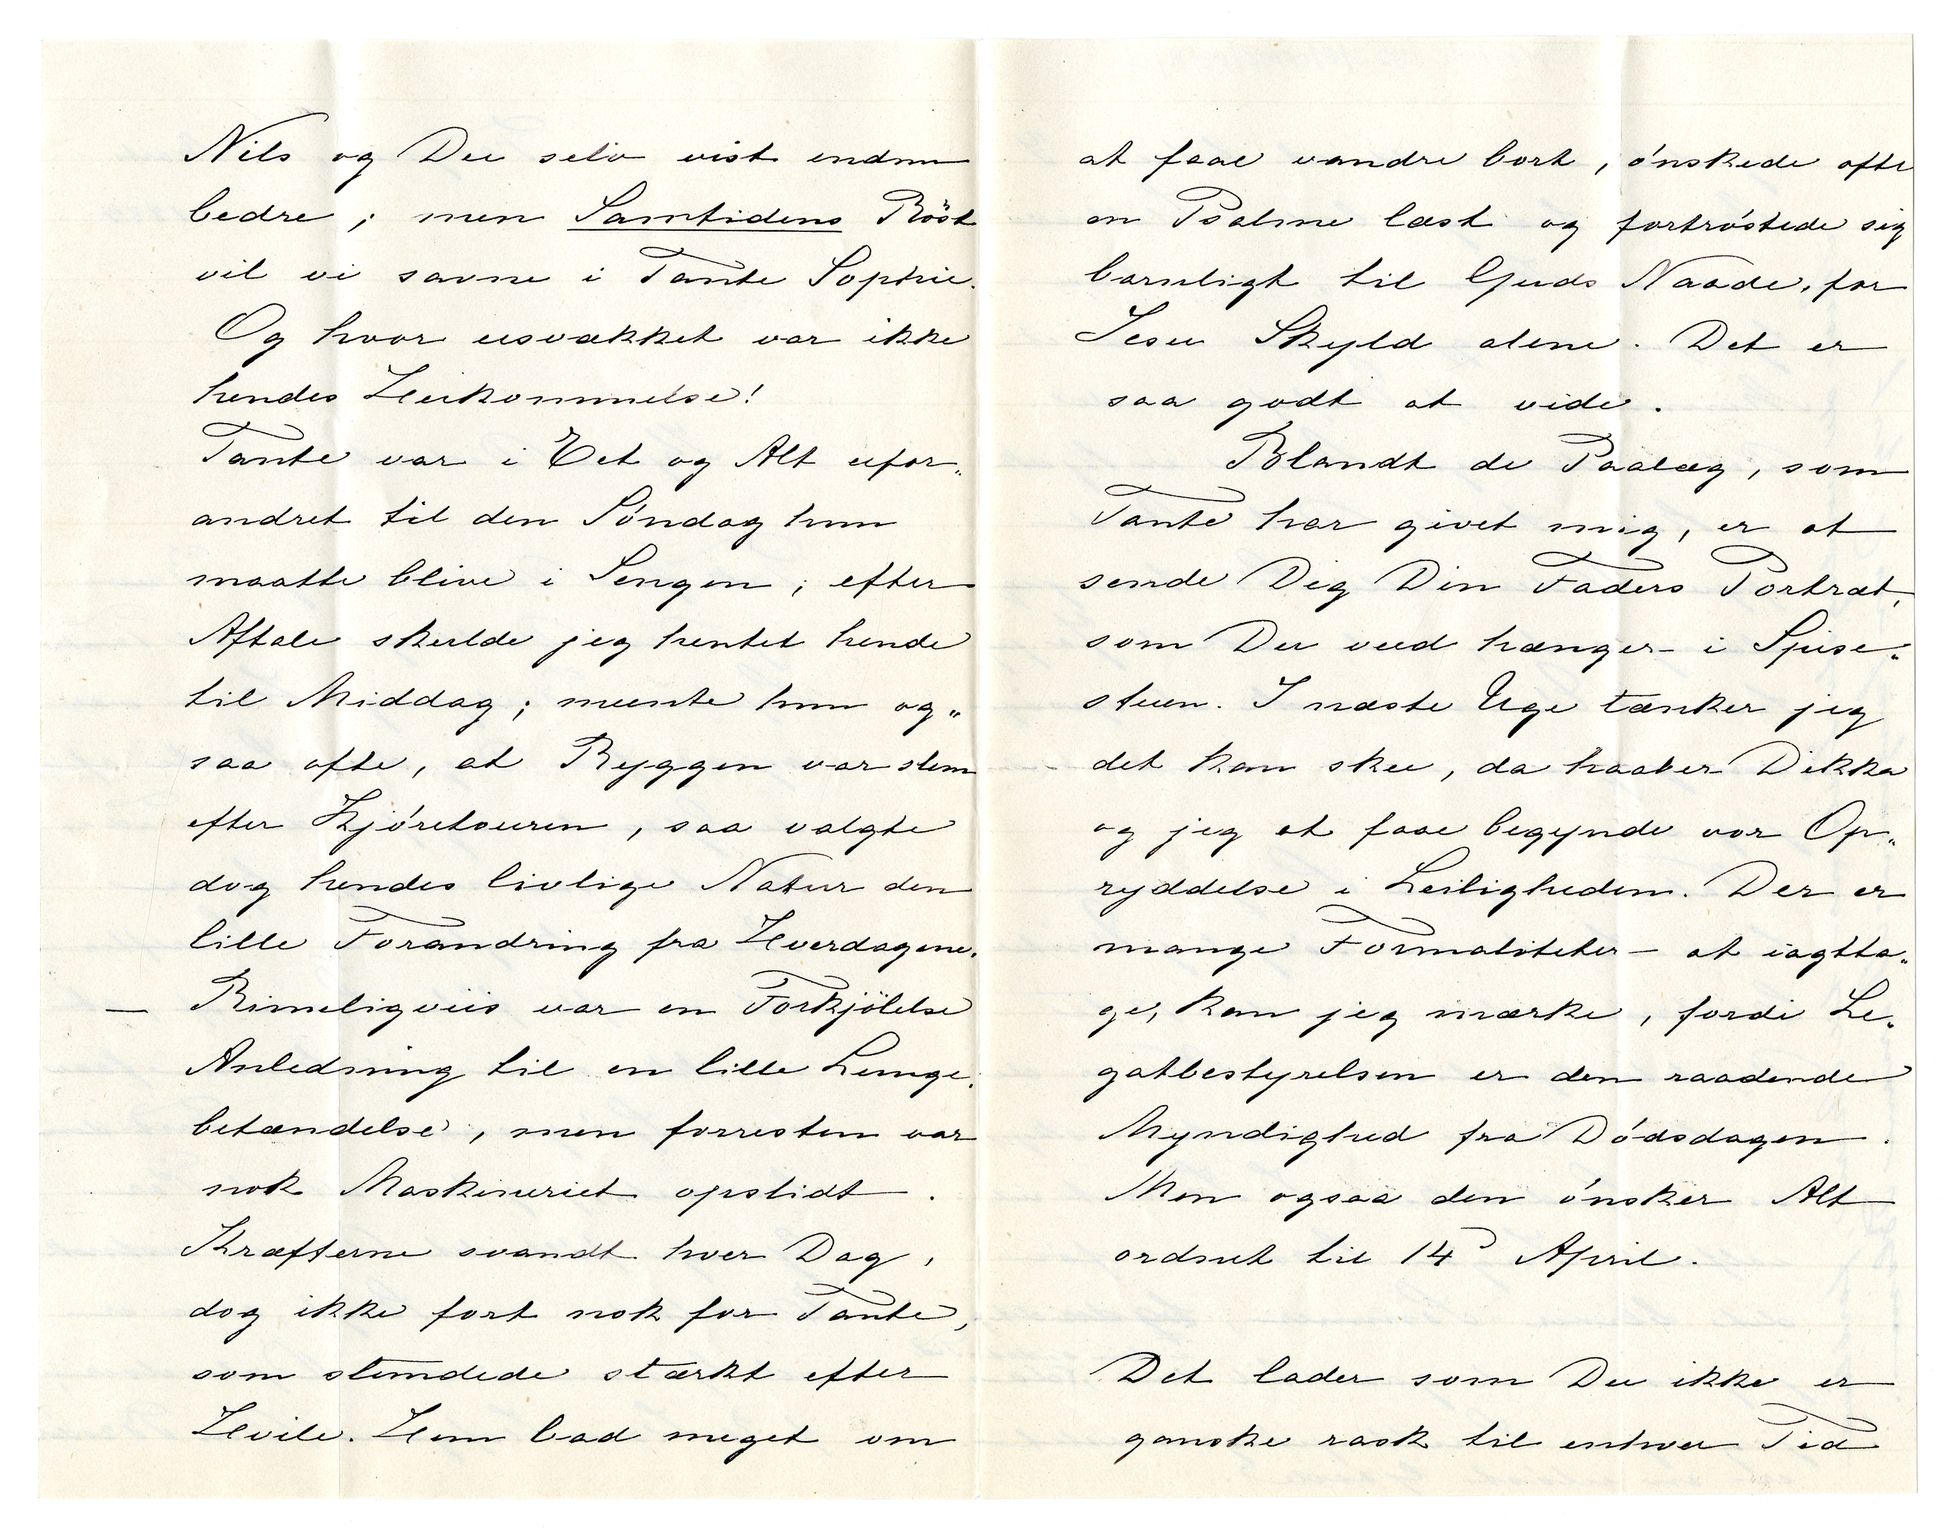 Nils og Du selv vist endnu
bedre; men Samtidens Röst
vil vi savne i Tante Sophie.
Og hvor usvækket var ikke
hendes Heikommelse!
Tante var i Eet og Alt ufor„
andret til den Søndag hun
maatte blive i Sengen; efter
Aftale skulde jeg hentet hende
til Middag; meente hun og„
saa ofte, at Ryggen var slem
efter Kjøretouren, saa valgte
dog hendes livlige Natur den
lille Forandring fra Hverdagene.
— Rimeligviis var en Forkjölelse
Anledning til en lille Lunge„
betændelse, men forresten var
nok Maskineriet opslidt.
Kræfterne svandt hver Dag,
dog ikke fort nok for Tante,
som stundede stærkt efter
Hvile. Hun bad meget om
at faae vandre bort, ønskede ofte
en Psalme læst og fortrøstede sig
barnligt til Guds Naade, for
Jesu Skyld alene. Det er
saa godt at vide.
Blandt de Paalæg, som
Tante har givet mig, er at
sende Dig Din Faders Portræt,
som Du veed hænger i Spise„
stuen. I næste Uge tænker jeg
det kan skee, da haaber Dikka
og jeg at faae begynde vor Op„
ryddelse i Leiligheden. Der er
mange Formaliteter at iagtta„
ge, kan jeg mærke, fordi Le„
gatbestyrelsen er den raadende
Myndighed fra Dødsdagen.
Men ogsaa den ønsker Alt
ordnet til 14d April.
Det lader som Du ikke er
ganske rask til enhver Tid